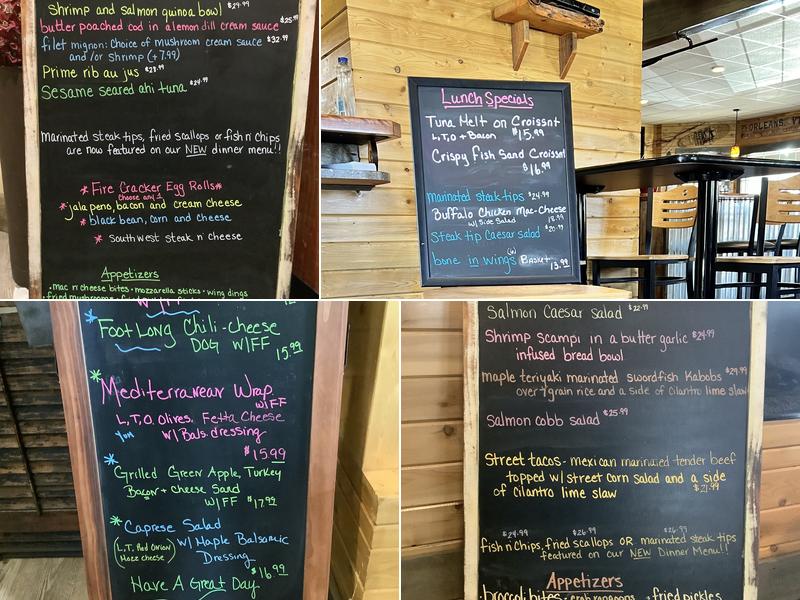 Shrimp and salmon quinoa bowl $29.99
butter poached cod in a lemon dill cream sauce $25.99
filet mignon: Choice of mushroom cream sauce $32.99
and/or Shrimp (+7.99)
Prime rib au jus $28.99
Sesame seared ahi tuna $24.99
marinated steak tips, fried scallops or fish n' chips
are now featured on our NEW dinner menu!!
*Fire Cracker Egg Rolls*
choose any
*jalapeno, bacon and cream cheese
*black bean, corn and cheese
*Southwest steak n' cheese
Appetizers
•mac n' cheese bites • mozzarella sticks • wing dings
•fried mushrooms
Lunch Specials
Tuna Melt on Croissant
L,T,O + Bacon $15.99
Crispy Fish Sand Croissnt
$16.99
marinated steak tips $24.99
Buffalo Chicken Mac-Cheese
w/ Side Salad 18.99
Steak tip Caesar salad
bone in wings (6) Basket
13.99
ORLEANS
*Foot Long Chili-cheese
DOG W/FF 15.99
*Mediterranean Wrap
W/FF
L,T,O. Olives. Fetta Cheese
w/ Bals. dressing
$15.99
*Grilled Green Apple, Turkey
Bacon + Cheese Sand
W/FF $17.99
*Caprese Salad
(L,T, Red Onion Mozz cheese) w/ Maple Balsamic
Dressing
$16.99
Have A Great Day
Salmon Caesar salad $22.99
Shrimp scampi in a butter garlic $24.99
infused bread bowl
maple teriyaki marinated swordfish Kabobs $29.99
over 7 grain rice and a side of cilantro lime slaw
Salmon cobb salad $25.99
Street tacos - mexican marinated tender beef
topped w/ street corn salad and a side
of cilantro lime slaw $21.99
$24.99 $26.99 $26.99
fish n chips, fried scallops OR marinated steak tips
featured on our NEW Dinner Menu!!
Appetizers
•broccoli bites • crab rangoons • fried pickles